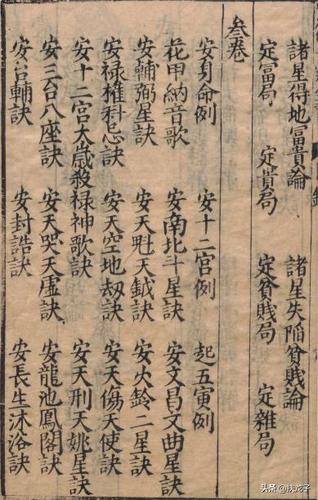 諸星得地富貴論　諸星失陷貧賤論
定富局　定貴局　定貧賤局　定雜局
叁卷
安身命例　安十二宮例　起五寅例
花甲納音歌　安南北斗星訣　安文昌文曲星訣
安輔弼星訣　安天魁天鉞訣　安火鈴二星訣
安祿權科忌訣　安天空地刼訣　安天傷天使訣
安十二宮太歲殺祿神歌訣　安天刑天姚星訣
安三台八座訣　安天哭天虛訣　安龍池鳳閣訣
安台輔訣　安封誥訣　安長生沐浴訣
头条